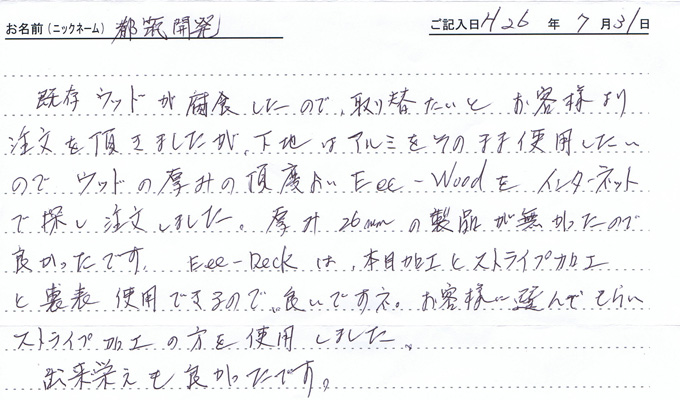 お名前(ニックネーム) 都筑開発 ご記入日 H26 年 7 月 31 日
既存ウッドが腐食したので、取り替たいとお客様より
注文を頂きましたが、下地はアルミをそのまま使用したい
のでウッドの厚みの頂度よいEee-Woodをインターネット
で探し注文しました。厚み26mmの製品が無かったので
良かったです。Eee-Deckは、木目加工とストライプ加工
と裏表使用できるので、良いですネ。お客様に選んでもらい
ストライプ加工の方を使用しました。
出来栄えも良かったです。